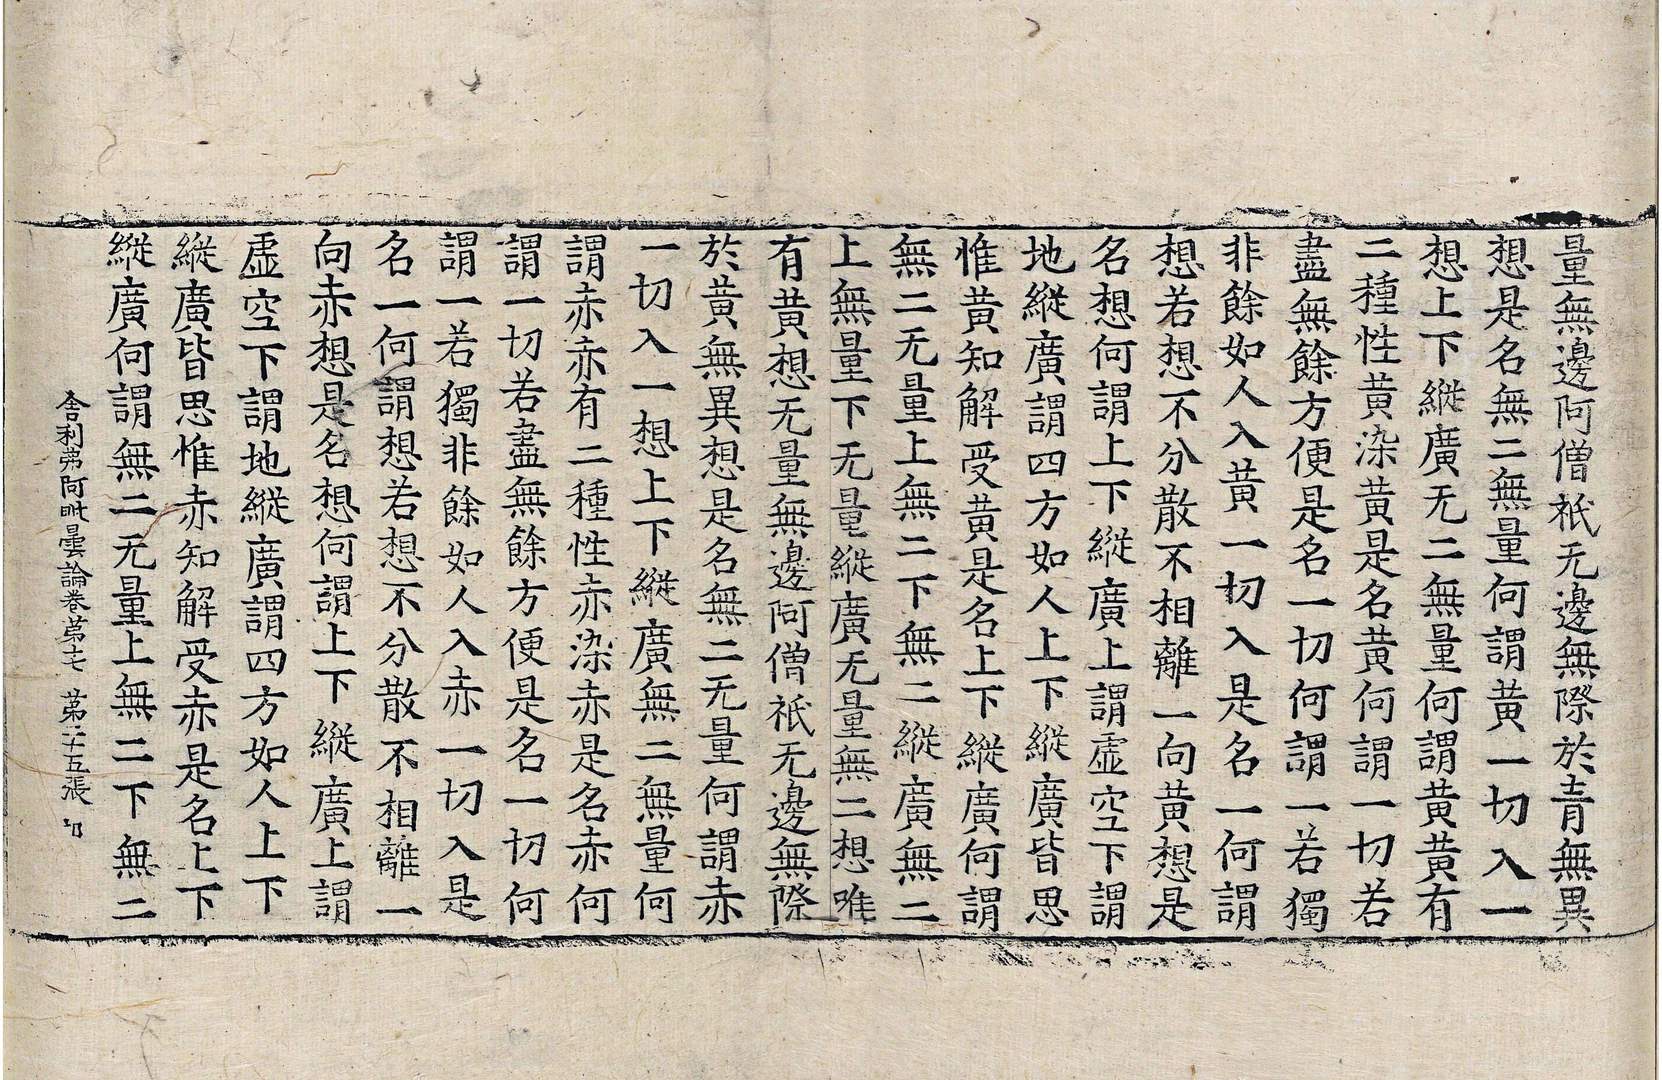 量無邊阿僧祇无邊無際於青無異
想是名無二無量何謂黄一切入一
想上下縱廣无二無量何謂黄黄有
二種性黄染黄是名黄何謂一切若
盡無餘方便是名一切何謂一若獨
非餘如人入黄一切入是名一何謂
想若想不分散不相離一向黄想是
名想何謂上下縱廣上謂虛空下謂
地縱廣謂四方如人上下縱廣皆思
惟黄知解受黄是名上下縱廣何謂
無二无量上無二下無二縱廣無二
上無量下无量縱廣无量無二想唯
有黄想无量無邊阿僧祇无邊無際
於黄無異想是名無二无量何謂赤
一切入一想上下縱廣無二無量何
謂赤赤有二種性赤染赤是名赤何
謂一切若盡無餘方便是名一切何
謂一若獨非餘如人入赤一切入是
名一何謂想若想不分散不相離一
向赤想是名想何謂上下縱廣上謂
虛空下謂地縱廣謂四方如人上下
縱廣皆思惟赤知解受赤是名上下
縱廣何謂無二无量上無二下無二
舍利弗阿毗曇論卷第十七 第二十五張